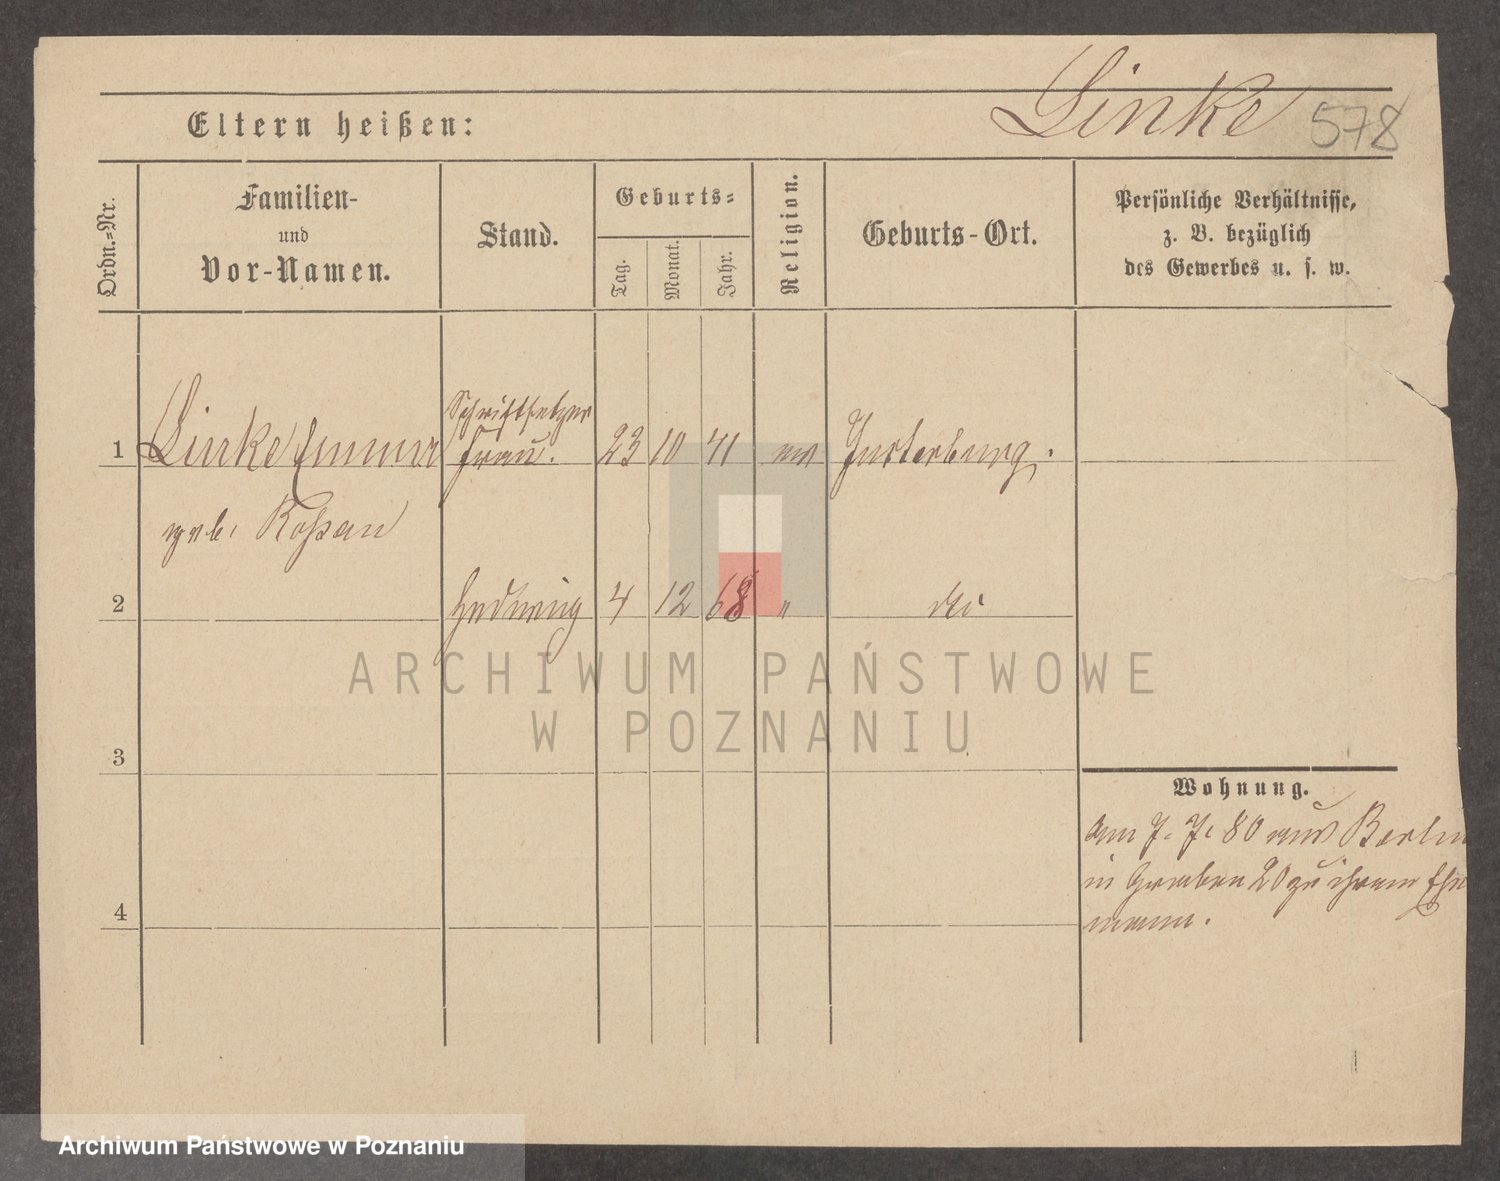 Linke 578
Eltern heißen:
Ordn.=Nr.
Familien-
und
Vor-Namen.
Stand.
Geburts=
Tag.
Monat.
Jahr.
Religion.
Geburts-Ort.
Persönliche Verhältnisse,
z. B. bezüglich
des Gewerbes u. s. w.
Schriftsetzer
1 Linke Emma Frau. 23 10 41 ev Insterburg.
geb. Roßan
2 Hedwig 4 12 68 " do
3
4
Wohnung.
am 7. 7. 80 aus Berlin
in Graben 20 zu ihrem Ehe
mann.
ARCHIWUM PAŃSTWOWE
W POZNANIU
Archiwum Państwowe w Poznaniu